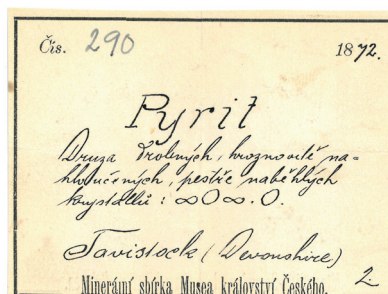 Čis. 290 1872.
Pyrit
Druza drobných, hroznovitě na-
hloučených, pestře naběhlých
krystallů : ∞O∞. O.
Tavistock (Devonshire)
Minerální sbírka Musea království Českého. 2